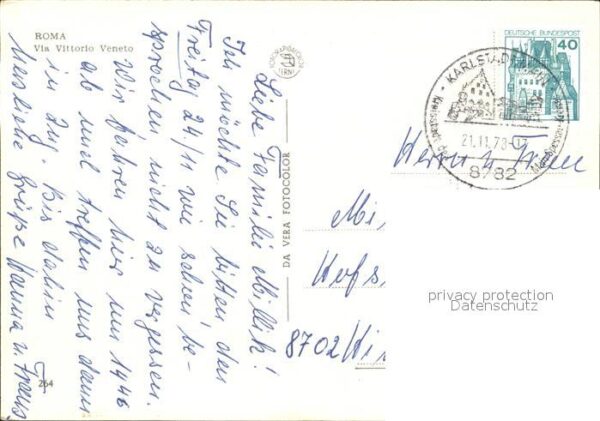 ROMA
Via Vittorio Veneto
Liebe Familie Millik!
Ich möchte Sie bitten den
Freitag 24/11 wie schon be-
sprochen nicht zu vergessen.
Wir fahren hier um 1446
ab und treffen uns dann
im Zug. Bis dahin
Herzliche Grüße Hanna u. Franz
264
DA VERA FOTOCOLOR
DEUTSCHE BUNDESPOST
40
KARLSTADT
21.11.78
8782
Herrn u. Frau
Mi
8702
privacy protection
Datenschutz